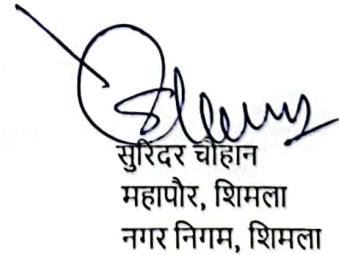 सुरिंदर चौहान
महापौर, शिमला
नगर निगम, शिमला